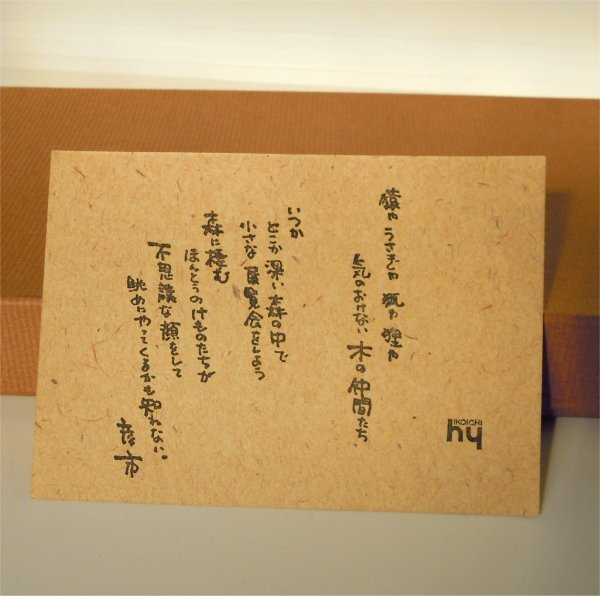 IKOICHI
hy
猿や うさぎや 狐や 狸や
気のおけない 木の仲間たち
いつか
どこか 深い 森の中で
小さな 展覧会をしよう
森に棲む
ほんとうのけものたちが
不思議な 顔をして
眺めにやってくるかも知れない。
彦一